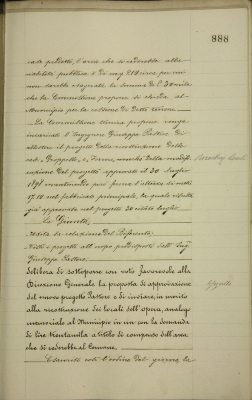 888
case prediette, l'area che si cederebbe alla
viabilità pubblica è di mq 218 circa per cui
sarebbe assegnata la somma di L. 30 mila
che la Commissione propone di chiedere al
Municipio per la cessione di detto terreno.
La Commissione tecnica propone venga
incaricato l'Ingegnere Giuseppe Pastore di
allestire il progetto della ricostruzione delle
case, nonché della modifi-
cazione del progetto approvato il 30 luglio
1898 mantenendo però ferma l'altezza di metri
17.50 nel fabbricato principale, la quale risulta
già approvata nel progetto 30 luglio
La Giunta,
Udita la relazione del Referente;
Visti i progetti all'uopo predisposti dall'Ing.
Giuseppe Pastore;
Delibera di sottoporre con voto favorevole alla
Direzione Generale la proposta di approvazione
del nuovo progetto Pastore e di inviare, in merito
alla ricostruzione dei locali dell'opera, analogo
memoriale al Municipio in un con la domanda
di lire trentamila a titolo di compenso dell'area
che si cederebbe al Comune.
Esaurito così l'ordine del giorno la